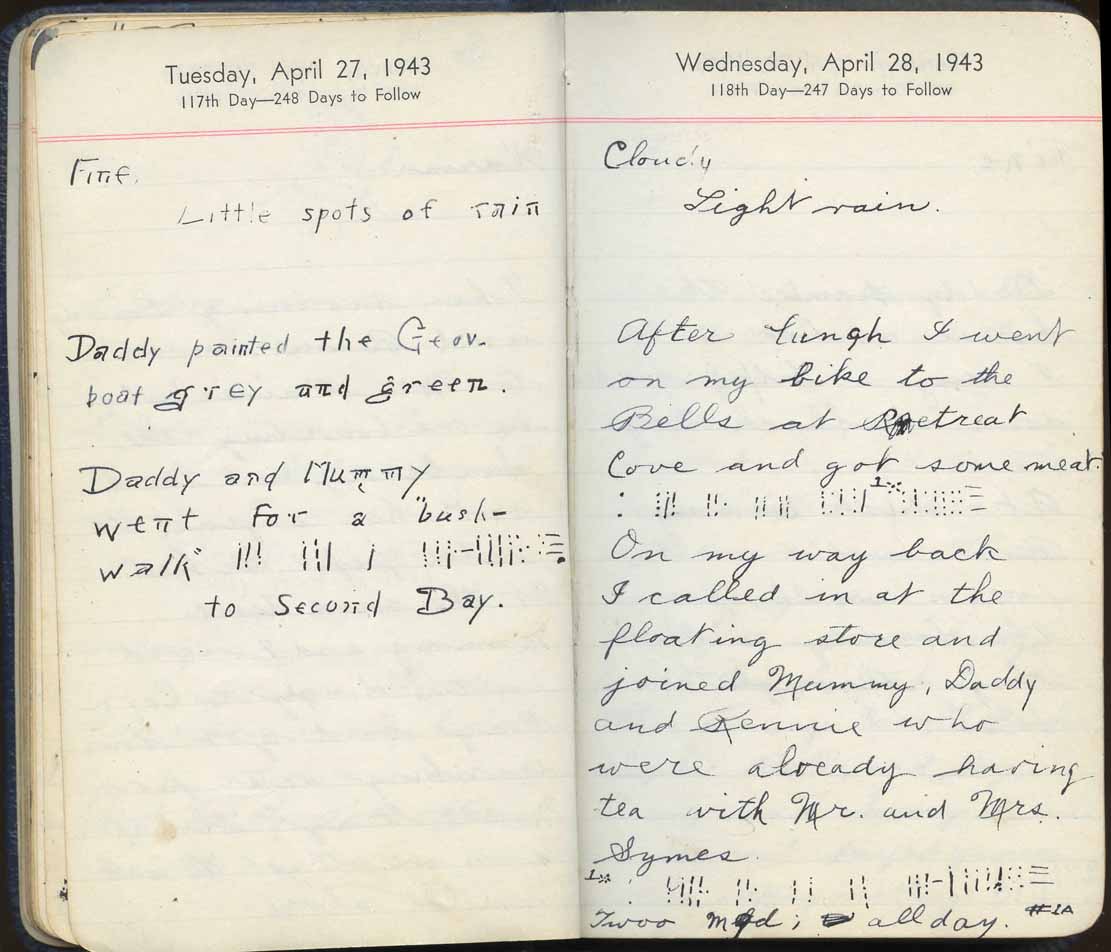 Tuesday, April 27, 1943
117th Day—248 Days to Follow
Fine.
Little spots of rain
Daddy painted the Gov.
boat grey and green.
Daddy and Mummy
went for a "bush-
walk"
to Second Bay.
Wednesday, April 28, 1943
118th Day—247 Days to Follow
Cloudy
Light rain.
After lungh I went
on my bike to the
Bells at Retreat
Cove and got some meat.
1*
On my way back
I called in at the
floating store and
joined Mummy, Daddy
and Rennie who
were already having
tea with Mr. and Mrs.
Symes.
1*
all day. #1A